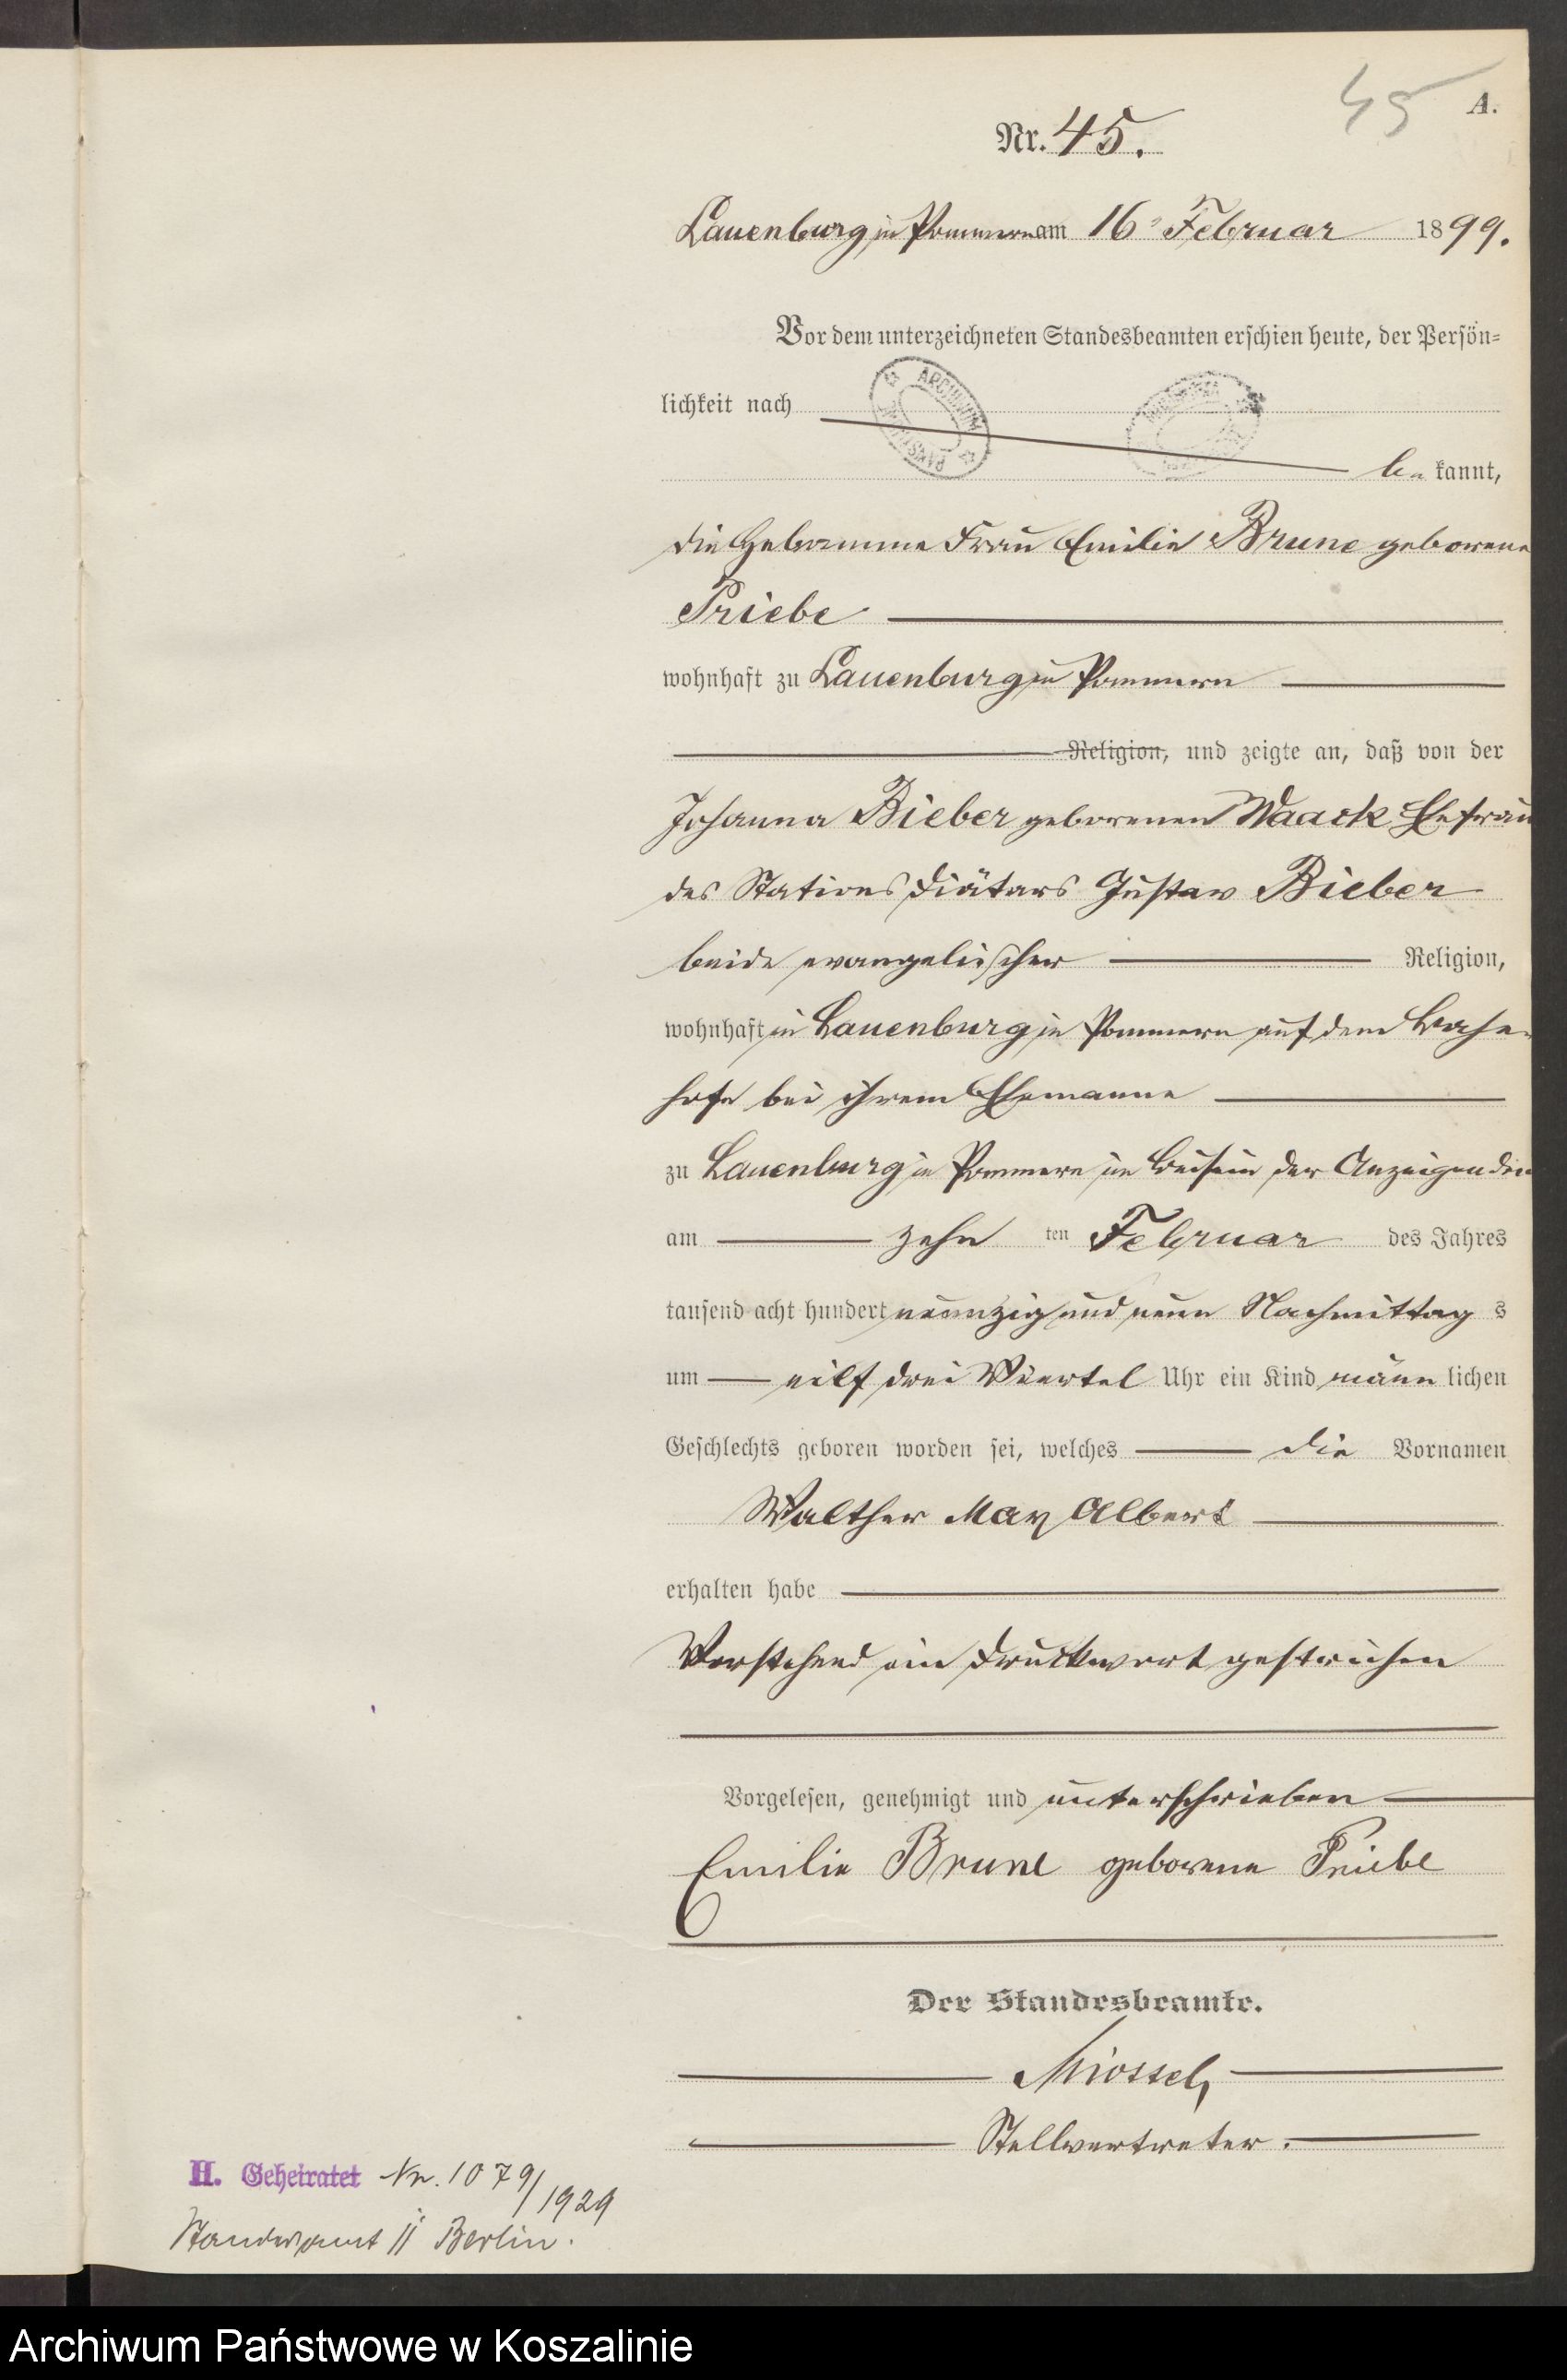 45 A.
Nr. 45.
Lauenburg in Pommern am 16. Februar 1899.
Vor dem unterzeichneten Standesbeamten erschien heute, der Persön-
lichkeit nach
ARCHIWUM PAŃSTW
be kannt,
die Hebamme Frau Emilie Brune geborene
Priebe
wohnhaft zu Lauenburg in Pommern
Religion, und zeigte an, daß von der
Johanna Bieber geborenen Waack Ehefrau
des Stations Diätars Gustav Bieber
beide evangelischer Religion,
wohnhaft in Lauenburg in Pommern auf dem Bahn-
hofe bei ihrem Ehemanne
zu Lauenburg in Pommern in Beisein der Anzeigenden
am zehn ten Februar des Jahres
tausend acht hundert neunzig und neun Nachmittag s
um eilf drei Viertel Uhr ein Kind männ lichen
Geschlechts geboren worden sei, welches die Vornamen
Walther Max Albert
erhalten habe
Vorstehend ein Druckwort gestrichen
Vorgelesen, genehmigt und unterschrieben
Emilie Brune geborene Priebe
Der Standesbeamte.
Stellvertreter.
H. Geheiratet Nr. 1079/1929
Standesamt II Berlin.
Archiwum Państwowe w Koszalinie